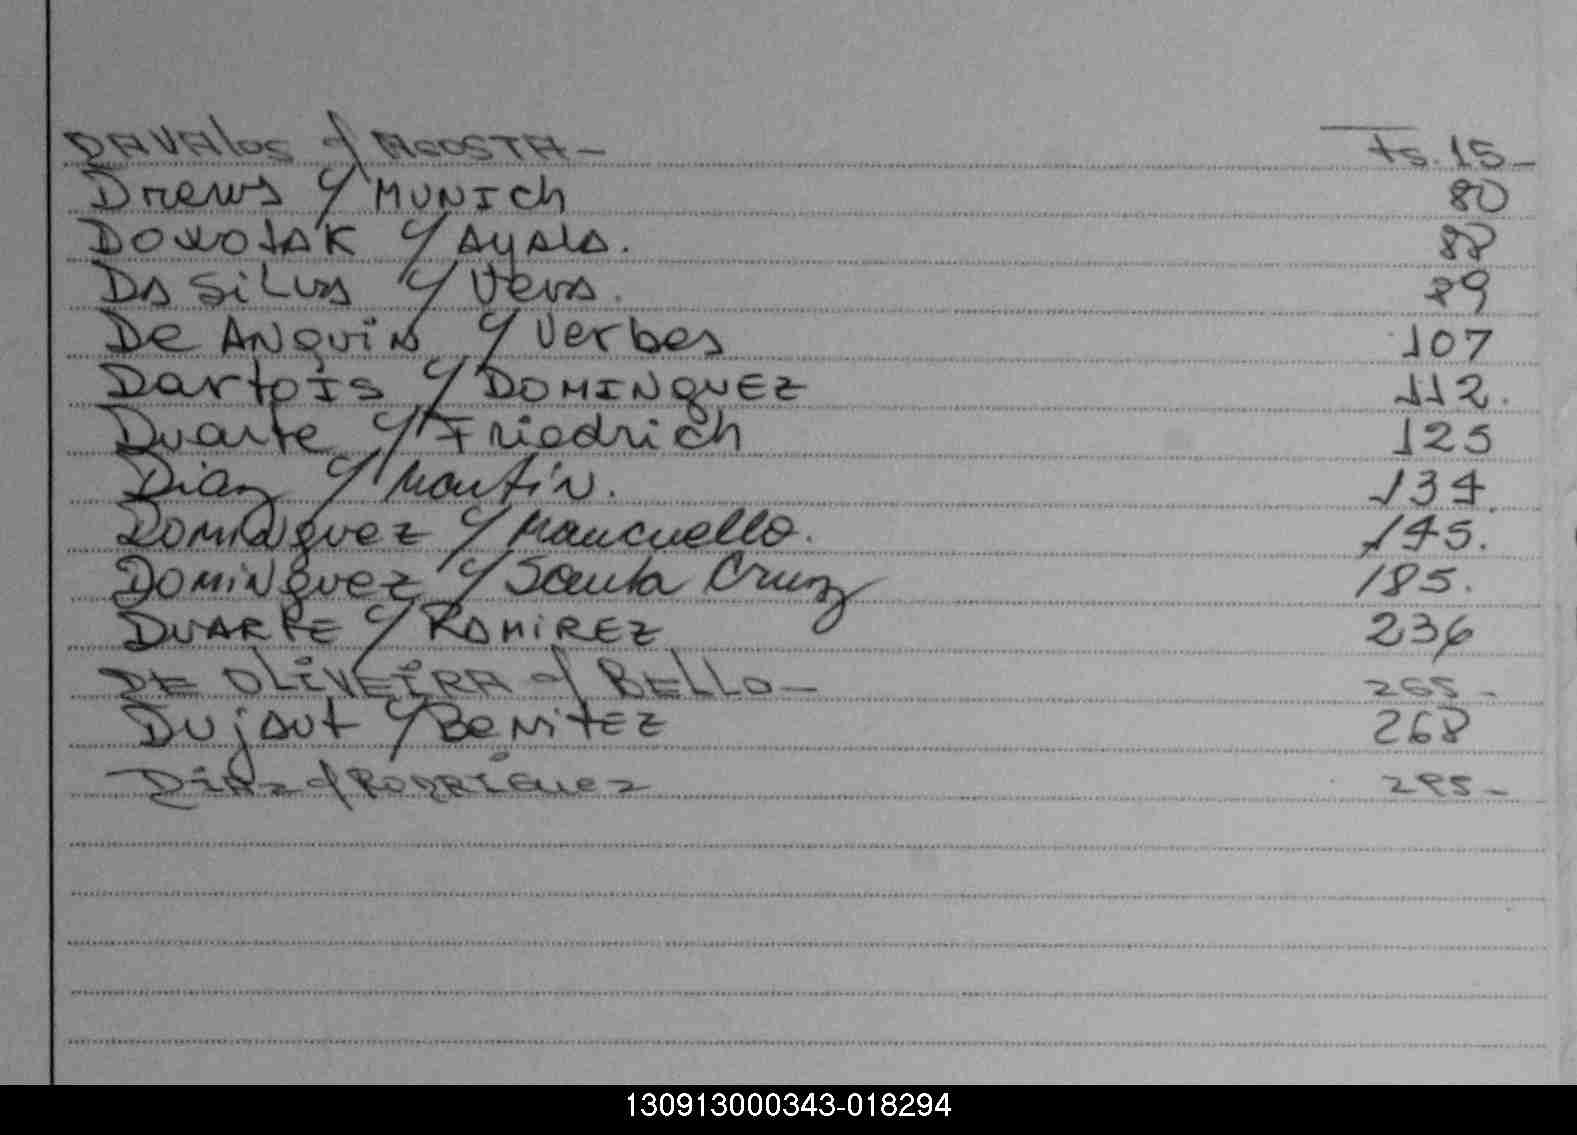 DAVALOS y ACOSTA - Fs. 15 -
Drews y MUNICh 80
y AyALA. 88
DA SiLVA y VerA. 89
De ANquiN y Verbes 107
DartoIs y DOMINguEZ 112.
Duarte y Friedrich 125
Diaz y Martin. 134.
DOMINguez y Mancuello. 145.
DOMINguez y Santa Cruz 185.
DUARTE y RAMIREZ 236
DE OLIVEIRA y BELLO - 265 -
DujAut y BeNitEZ 268
DiAZ y RODRIGuez 295 -
130913000343-018294